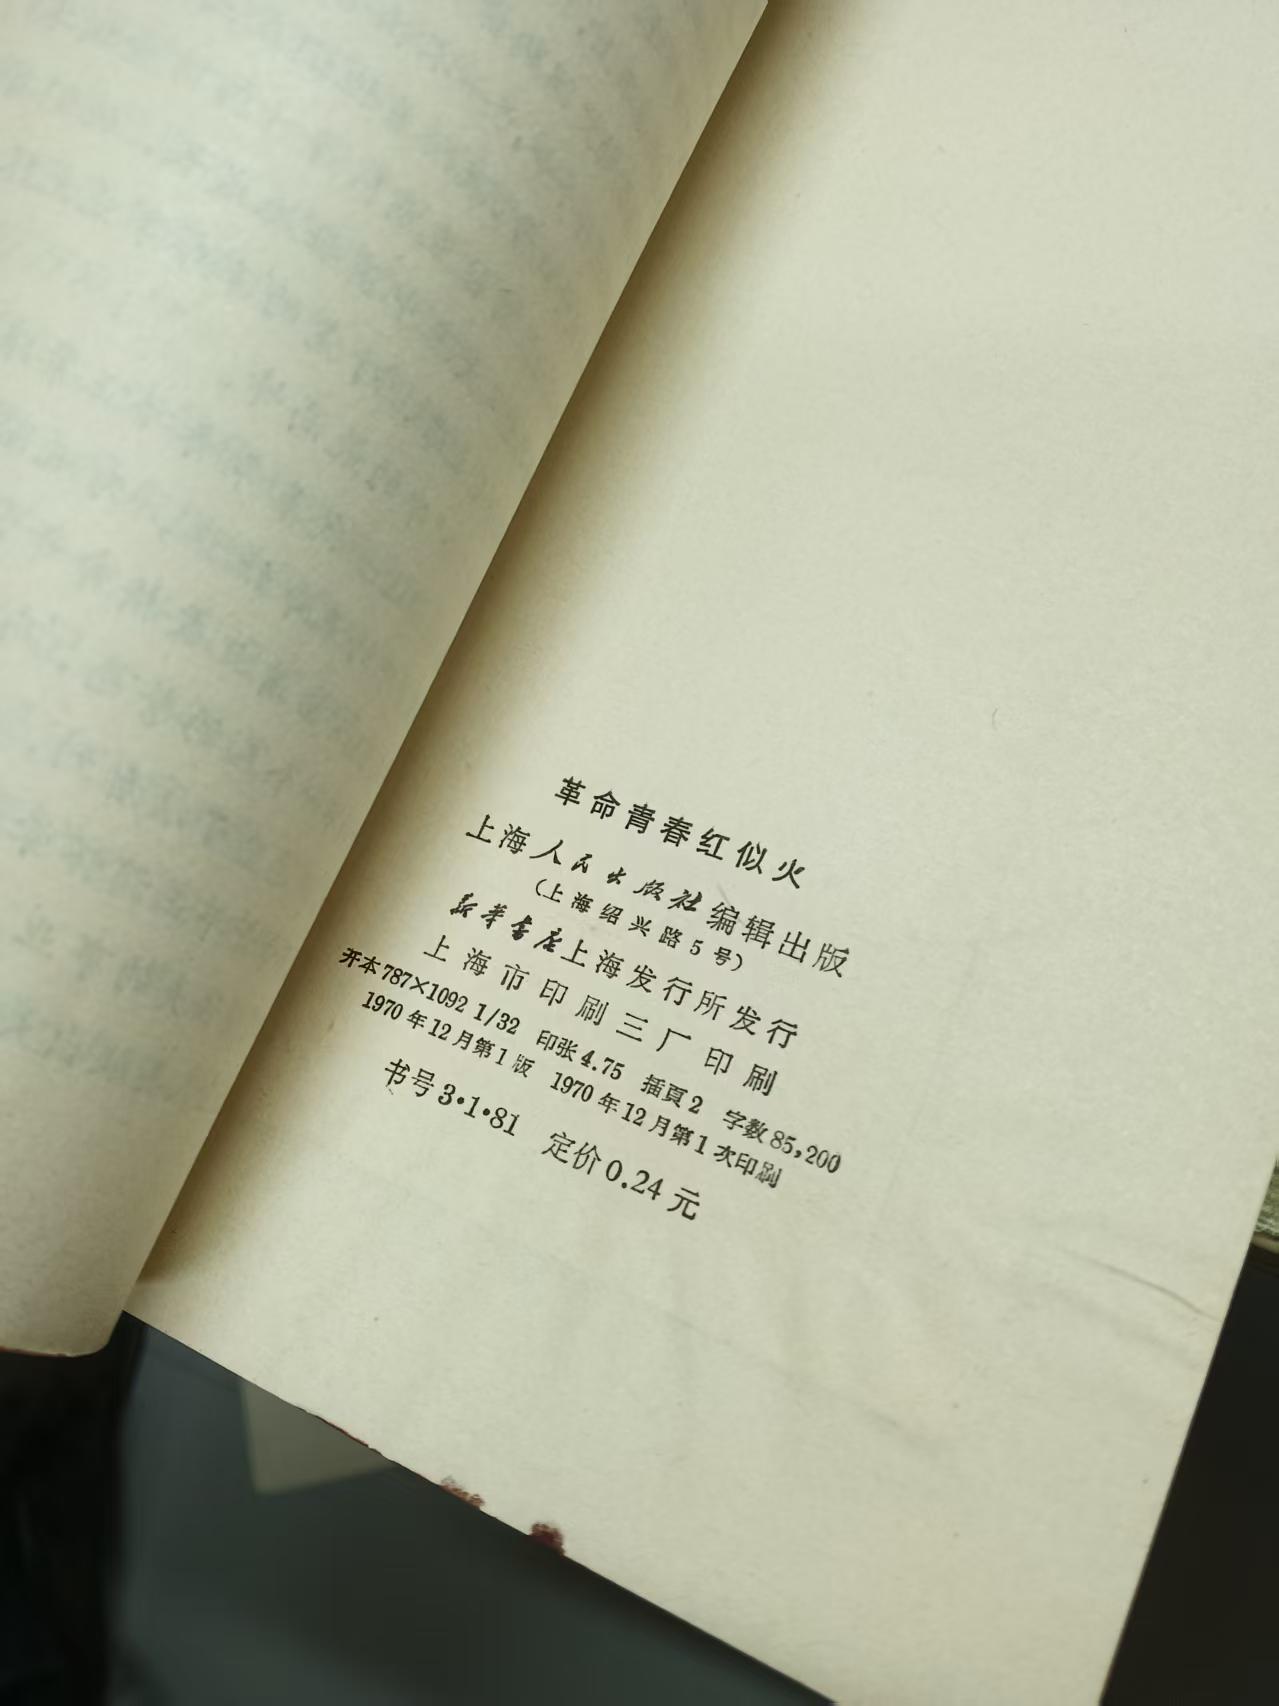 革命青春红似火
上海人民出版社编辑出版
（上海绍兴路5号）
新华书店上海发行所发行
上海市印刷三厂印刷
开本787×1092 1/32 印张4.75 插頁2 字数85,200
1970年12月第1版 1970年12月第1次印刷
书号3·1·81 定价0.24元